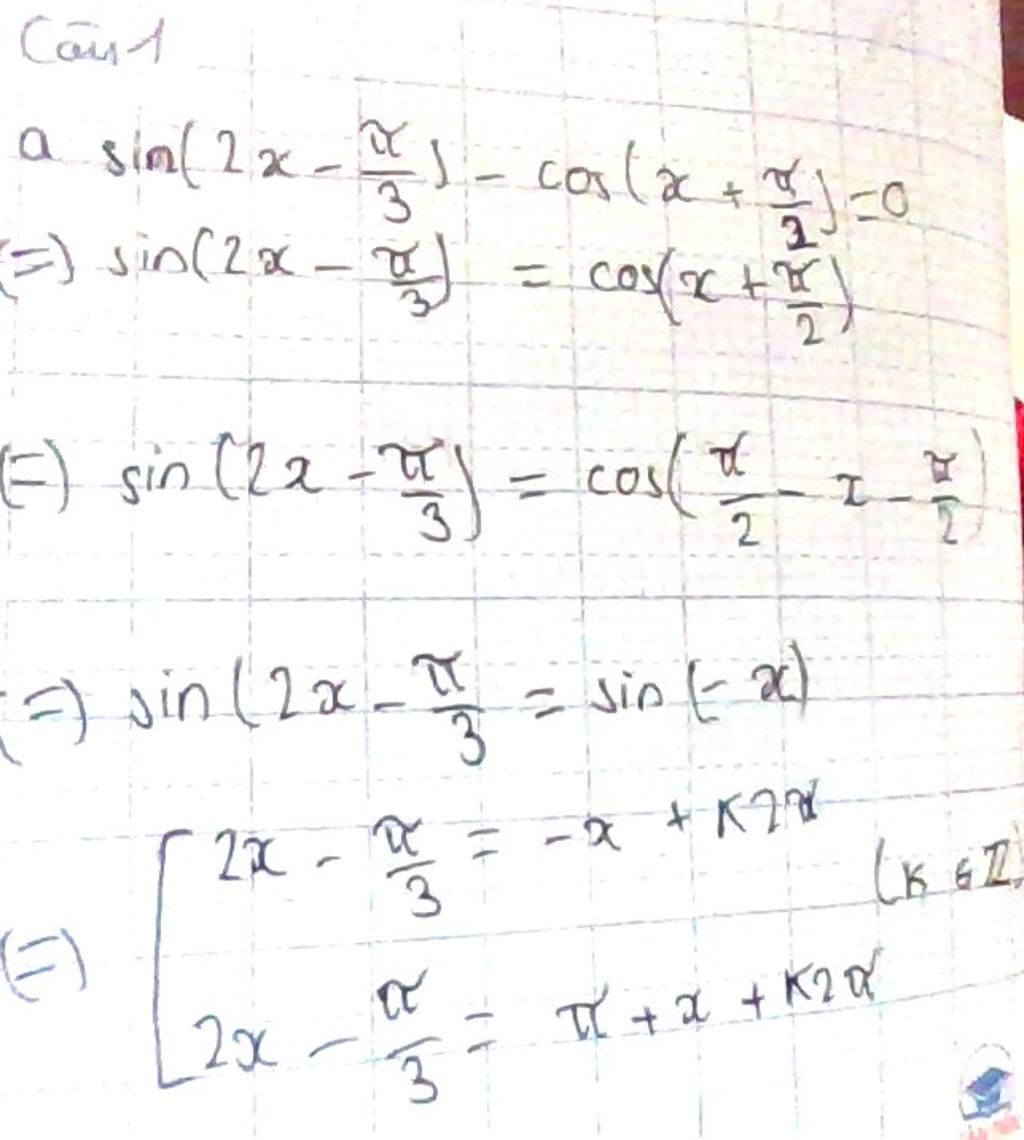 Câu 1
a sin(2x - π/3) - cos(x + π/2) = 0
(=) sin(2x - π/3) = cos(x + π/2)
(=) sin(2x - π/3) = cos(π/2 - x - π/2)
(=) sin(2x - π/3 = sin(-x)
(=) [ 2x - π/3 = -x + K2π
(K ∈ Z)
2x - π/3 = π + x + K2π